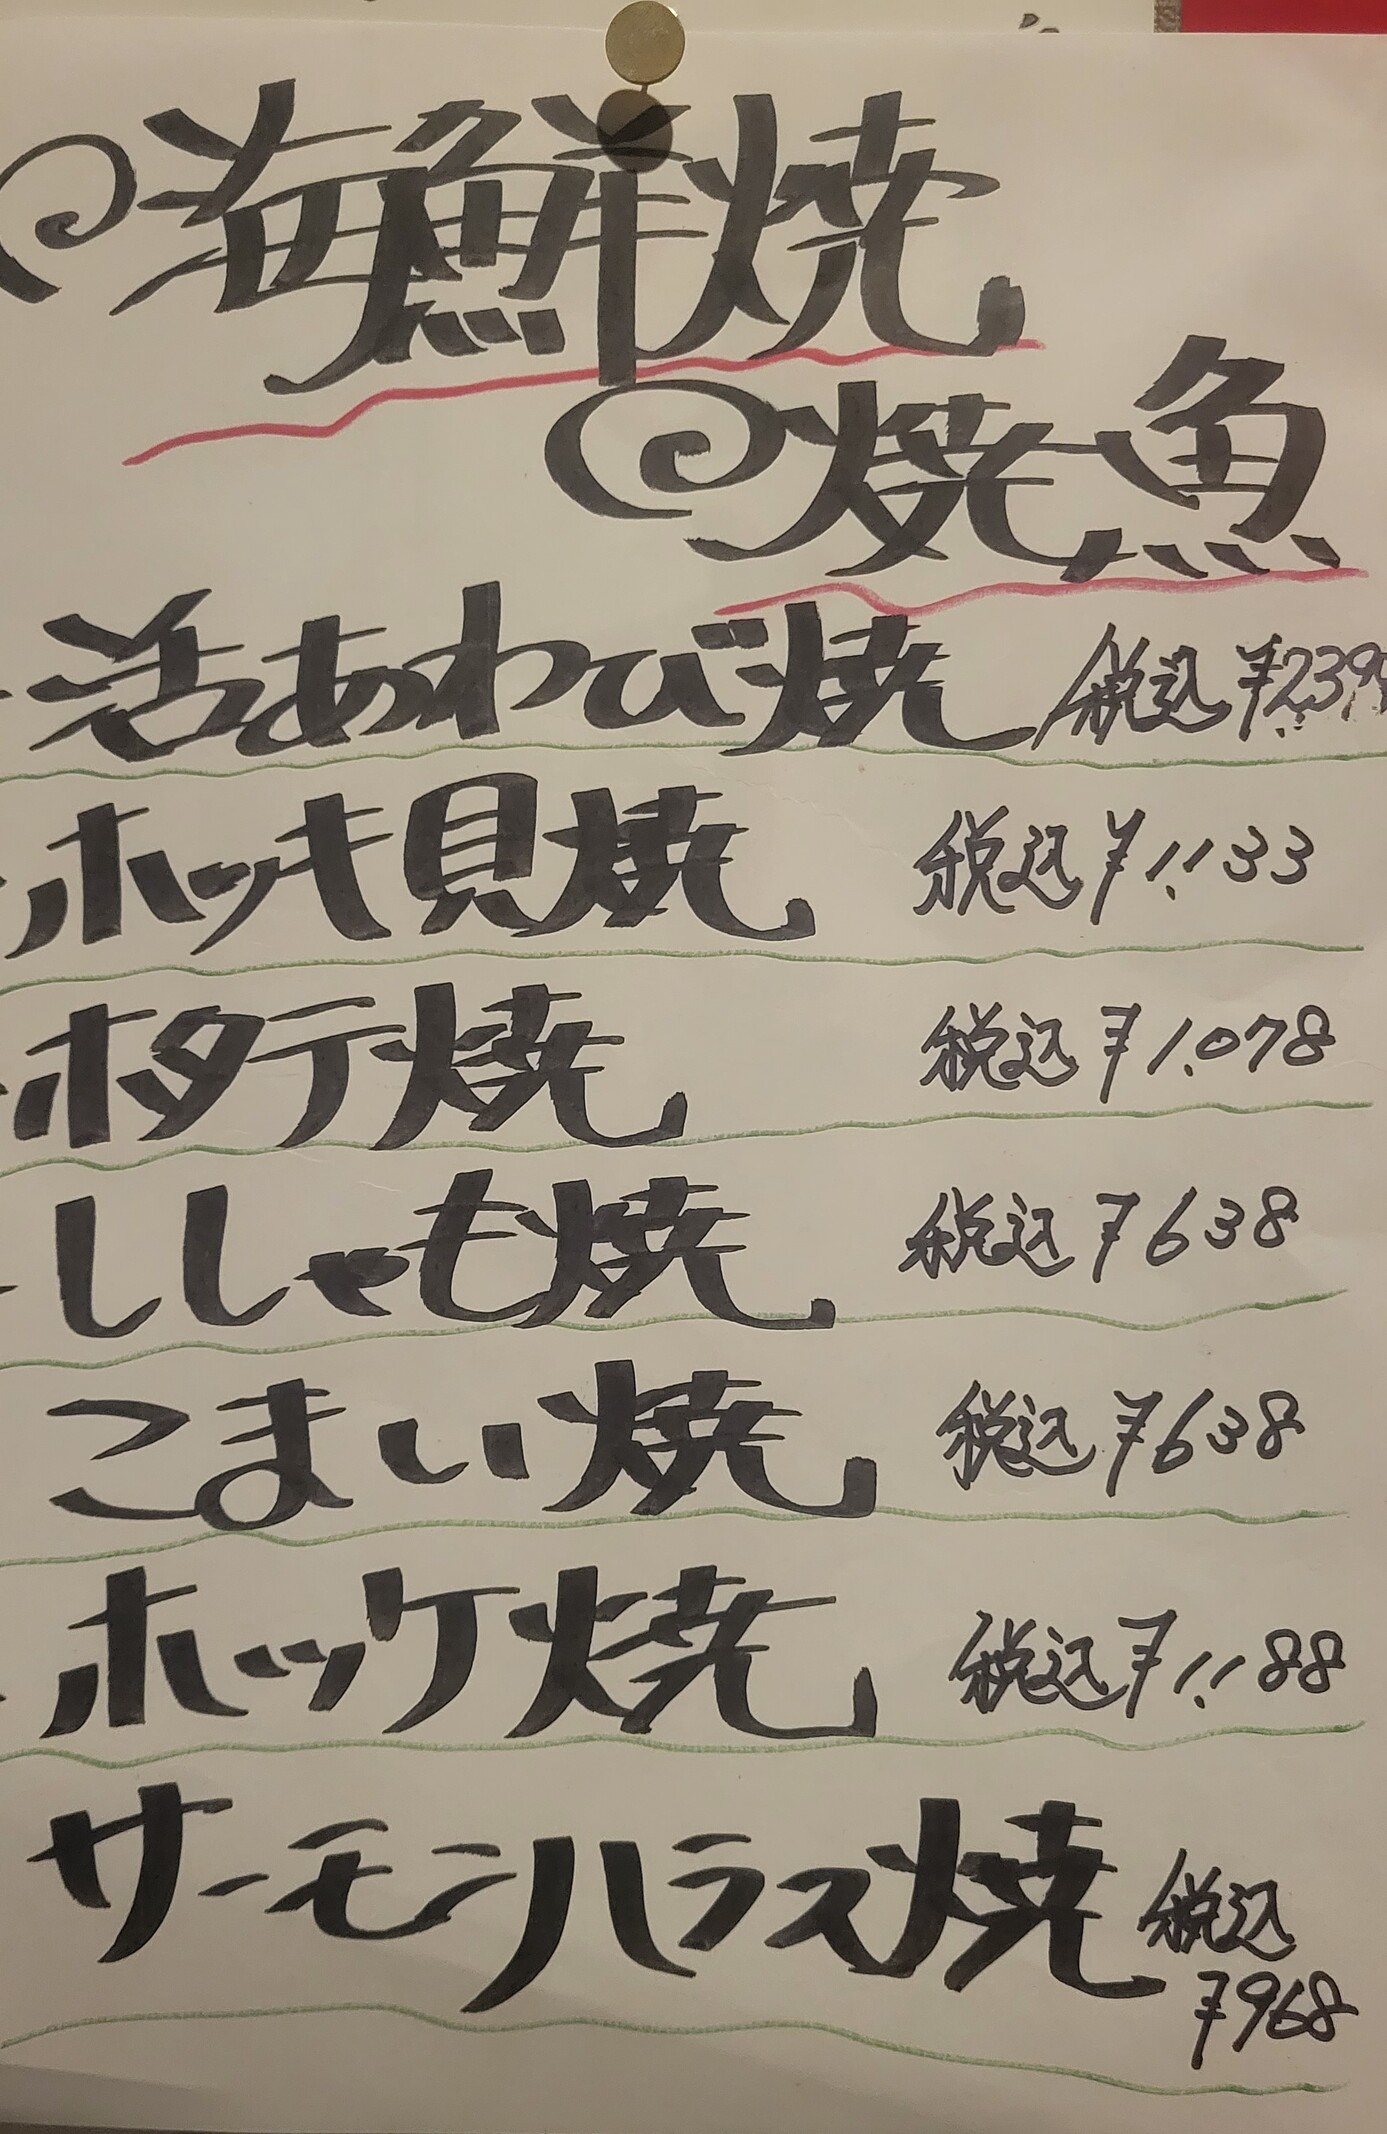 海鮮焼
焼魚
活あわび焼 税込 ¥2,39
ホッキ貝焼 税込 ¥1,133
ホタテ焼 税込 ¥1,078
ししゃも焼 税込 ¥638
こまい焼 税込 ¥638
ホッケ焼 税込 ¥1,188
サーモンハラス焼 税込
¥968